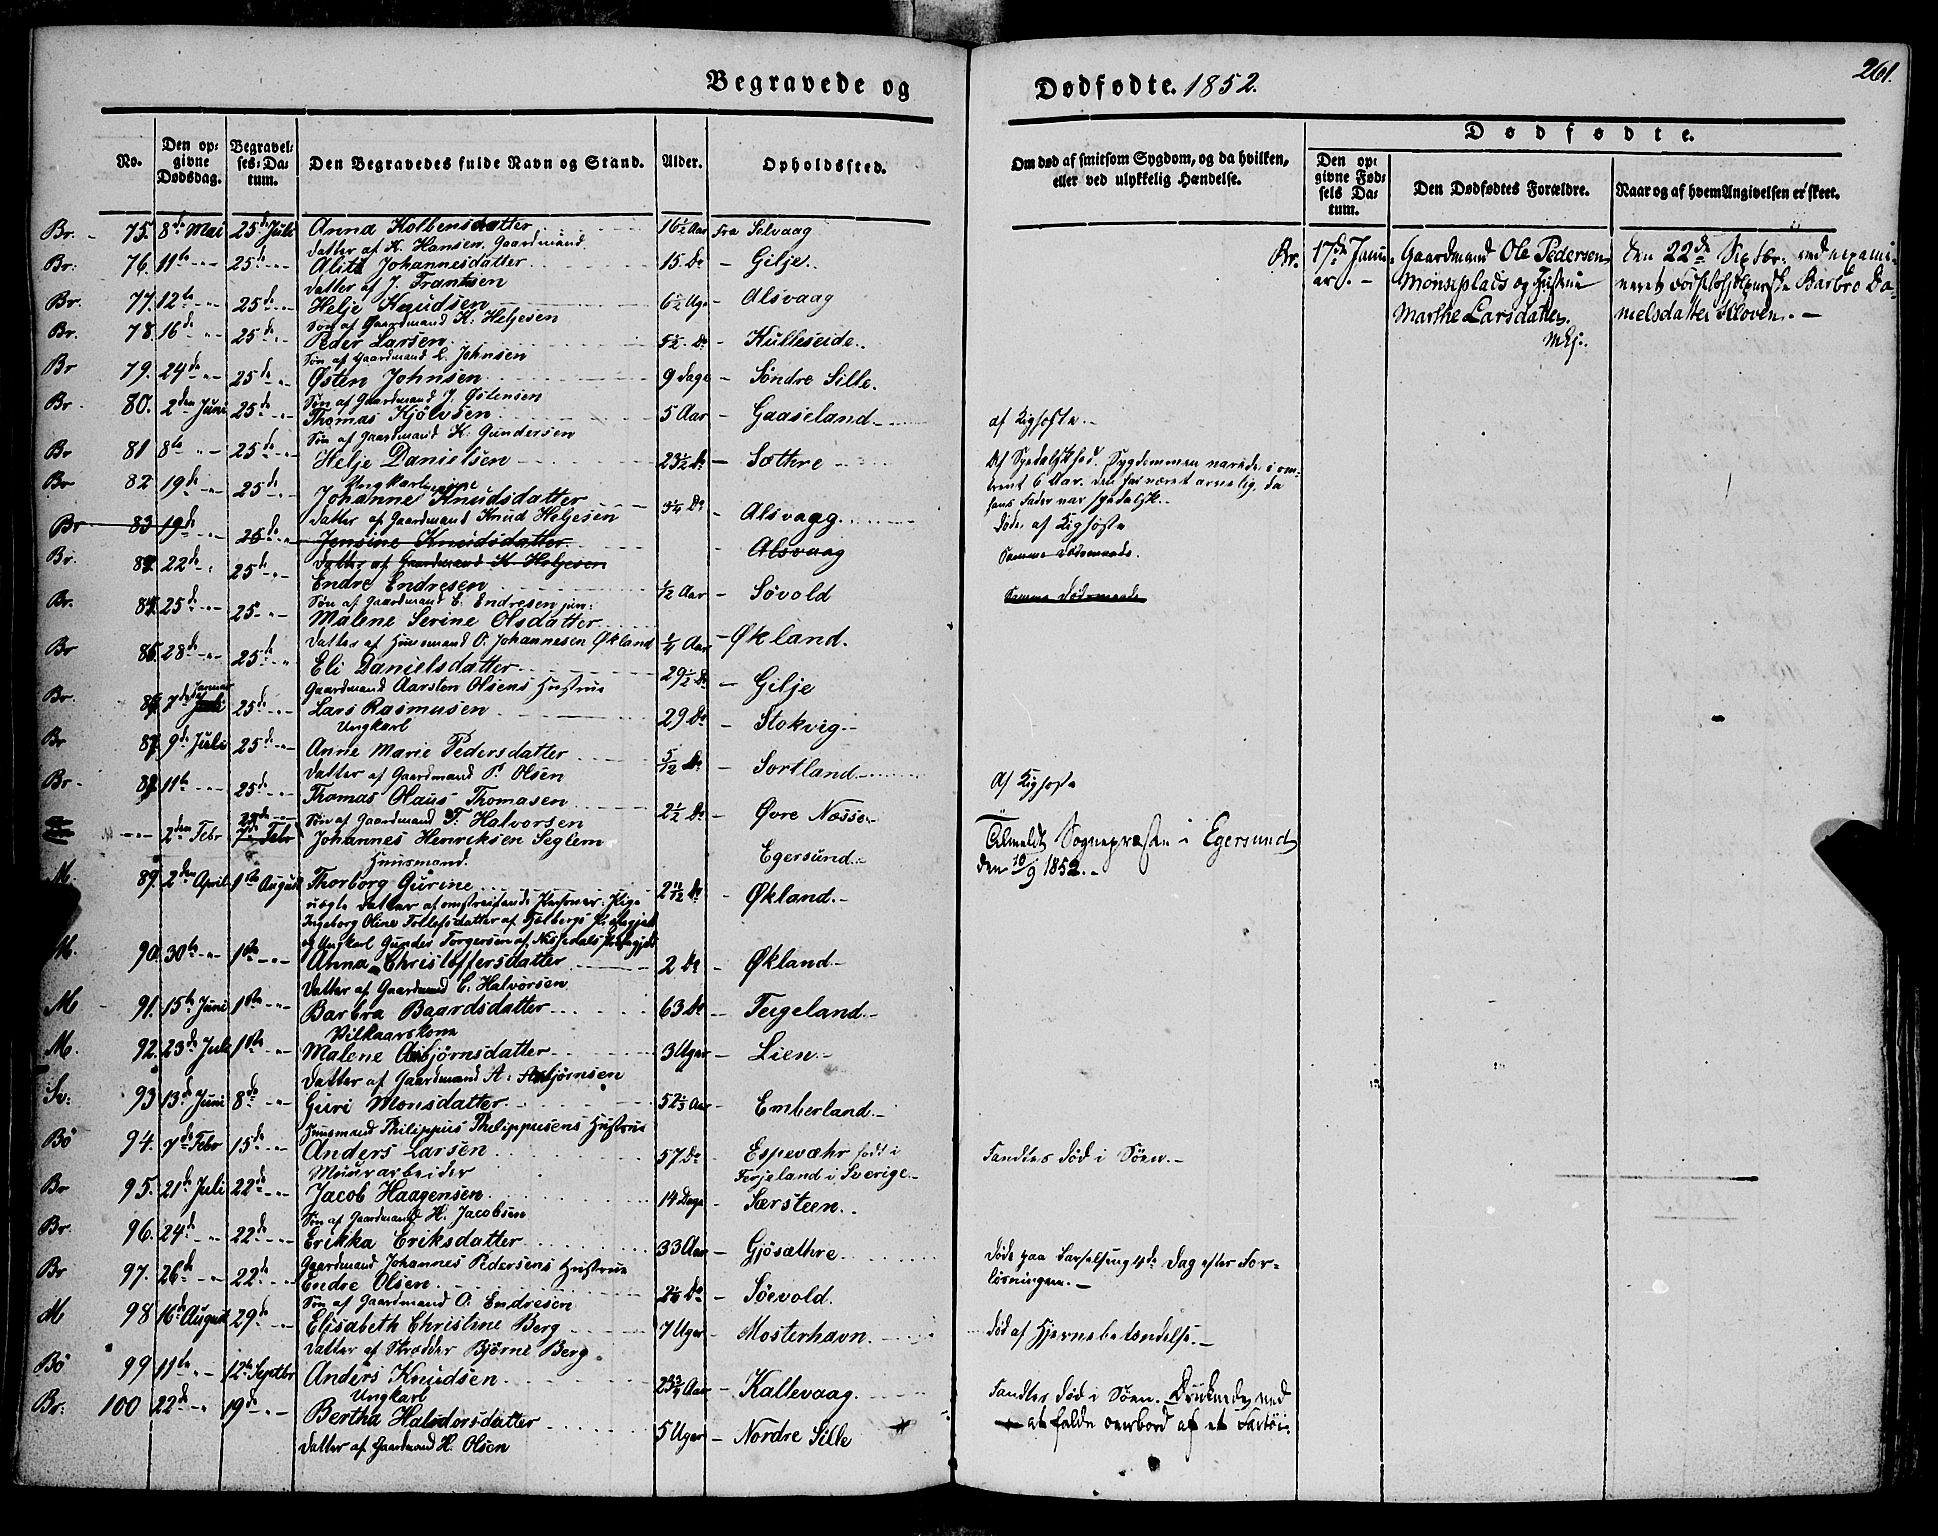 Begravede og Dødfødte. 1852.
261.
No.
Den opgivne Dødsdag.
Begravelses-Datum.
Den Begravedes fulde Navn og Stand.
Alder.
Opholdssted.
Om død af smitsom Sygdom, og da hvilken, eller ved ulykkelig Hændelse.
Dødfødte.
Den opgivne Fødsels Datum.
Den Dødfødtes Forældre.
Naar og af hvem Angivelsen er skeet.
Br. 75. 8de Mai 25de Juli Anna Kolbensdatter 16½ Aar fra Selvaag
Datter af K. Hansen, Gaardmand.
Br. 76. 11te 25de Alite Johannesdatter 15 Do Gilje.
Datter af J. Frantsen
Br. 77. 12te 25de Helje Knudsen 6½ Uge Alsvaag
Søn af Gaardmand K. Heljesen
Br. 78. 16de 25de Peder Larsen 5½ Do Kulleseide.
Søn af Gaardmand L. Johnsen
Br 79. 24de 25de Østen Johnsen 9 Dage Søndre Sille.
Søn af Gaardmand J. Østensen
Br. 80. 2den Juni 25de Thomas Kjølvsen 5 Aar Gaaseland af Kighoste.
Søn af Gaardmand K. Gundersen
Br 81 8te 25de Helje Danielsen 23½ Do Sæthre Af Spedalskhed. Sygdommen varede i om-
Ungkarl
krent 6 Aar. den har været arvelig, da
hans Fader var spedalsk.
Br 82 19de 25de Johanne Knudsdatter 5/4 Do Alsvagg Døde af Kighoste
Datter af Gaardmand Knud Heljesen
Br 83 19de 25de Jensine Knudsdatter Alsvaag Samme Dødsmaade.
Datter af Gaardmand K. Heljesen
Br. 22de 25de Endre Endresen ½ Aar Søvold Samme Dødsmaade
Søn af Gaardmand E. Endresen jun:
Br. 25de 25 Malene Serine Olsdatter ¼ Aar Økland.
Datter af Huusmand O. Johannesen Økland
Br 28de 25de Eli Danielsdatter 29½ Do Gilje
Gaardmand Aarsten Olsens Hustrue
Br. 7de Januar Juli 25de Lars Rasmusen 29 Do Stokvig
Ungkarl
Br 9de Juli 25de Anne Marie Pedersdatter 5/12 Do Sortland
Datter af Gaardmand P. Olsen
Br. 11te 25de Thomas Olaus Thomasen 2½ Do Øvre Næsse Af Kighoste
Søn af Gaardmand T. Halvorsen
2den Febr 7de Febr Johannes Henriksen Seglem Egersund Tilmeldt Sognepræsten i Egersund
Huusmand.
den 10/9 1852.
M. 89. 2den April 1ste August Thorborg Gurine 2 11/12 Do Økland.
uægte Datter af omstreifende Personer: Pige
Ingeborg Oline Tollefsdatter af Præstegjæld
og Ungkarl Gunder Torgersen af Nissedals Præstegjeld
M. 90. 30te 1ste Anna Christoffersdatter 2 Do Økland
Datter af Gaardmand C. Halvorsen
M 91. 15te Juni 1ste Barbra Baardsdatter 63 Do Teigeland.
Vilkaarskone
M. 92. 23de Juli 1ste Malene Asbjørnsdatter 3 Uger Lien.
Datter af Gaardmand A. Asbjørnsen
Sv. 93 13de Juni 8de Guri Monsdatter 52⅓ Aar Emberland.
Huusmand Philippus Philippusens Hustrue
Bø 94. 7de Febr 15de Anders Larsen 57 Do Espevæhr født i Fandtes død i Søen.
Muurarbeider
i Sverige.
Br 95. 21de Juli 22de Jacob Haagensen 14 Dage Særsteen.
Søn af Gaardmand H. Jacobsen
Br 96. 24de 22de Erikka Eriksdatter 33 Aar Gjøsæthre Døde paa Barselseng 4de Dag efter For-
Gaardmand Johannes Pedersens Hustrue
løsningen.
Br 97. 26de 22de Endre Olsen 2⅙ Do Søevold.
Søn af Gaardmand O. Endresen
M 98 16de August 29de Elisabeth Christine Berg 7 Uger Mosterhavn. død af Hjernebetændelse.
Datter af Skrædder Bjørne Berg
Bø 99 11te 12te Septbr Anders Knudsen 23¾ Aar Kallevaag. Fandtes død i Søen. Druknede ved
Ungkarl
at falde overbord af et Fartøi.
Br: 100 22de 19de Bertha Halvdorsdatter 5 Uger Nordre Sille
Datter af Gaardmand H. Olsen
Br. 17de Janu-
ar.
Gaardmand Ole Pedersen
Monseplads og Hustrue
Marthe Larsdatter.
den 22de Septbr. ved uexami-
neret Fødselshjelperske Barbro Da-
nielsdatter Kloven.